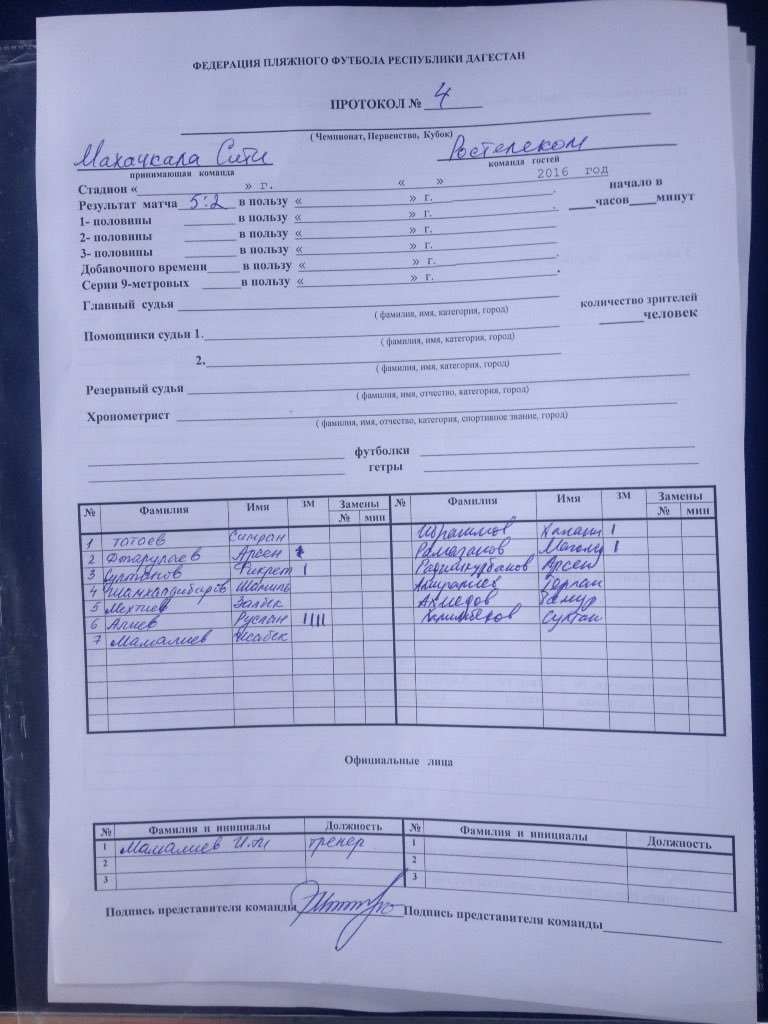 ФЕДЕРАЦИЯ ПЛЯЖНОГО ФУТБОЛА РЕСПУБЛИКИ ДАГЕСТАН
ПРОТОКОЛ № 4
( Чемпионат, Первенство, Кубок)
Махачкала Сити Ростелеком
принимающая команда команда гостей
2016 год
Стадион « » г. « » начало в
Результат матча 5:2 в пользу « » г. часов минут
1- половины в пользу « » г.
2- половины в пользу « » г.
3- половины в пользу « » г.
Добавочного времени в пользу « » г.
Серии 9-метровых в пользу « » г.
Главный судья количество зрителей
( фамилия, имя, категория, город) человек
Помощники судьи 1.
( фамилия, имя, категория, город)
2.
( фамилия, имя, категория, город)
Резервный судья
( фамилия, имя, отчество, категория, город)
Хронометрист
( фамилия, имя, отчество, категория, спортивное звание, город)
футболки
гетры
№ Фамилия Имя ЗМ Замены № Фамилия Имя ЗМ Замены
№ мин № мин
1 Татаев Ибрагимов I
2 Арсен Рамазанов I
3 Султанов Фикрет I Арсен
4 Шамиль
5 Мехтиев Залбек Ахмедов
6 Алиев Руслан IIII Султан
7 Мамалиев
Официальные лица
№ Фамилия и инициалы Должность № Фамилия и инициалы Должность
1 Мамалиев И.М тренер 1
2 2
3 3
Подпись представителя команды Подпись представителя команды